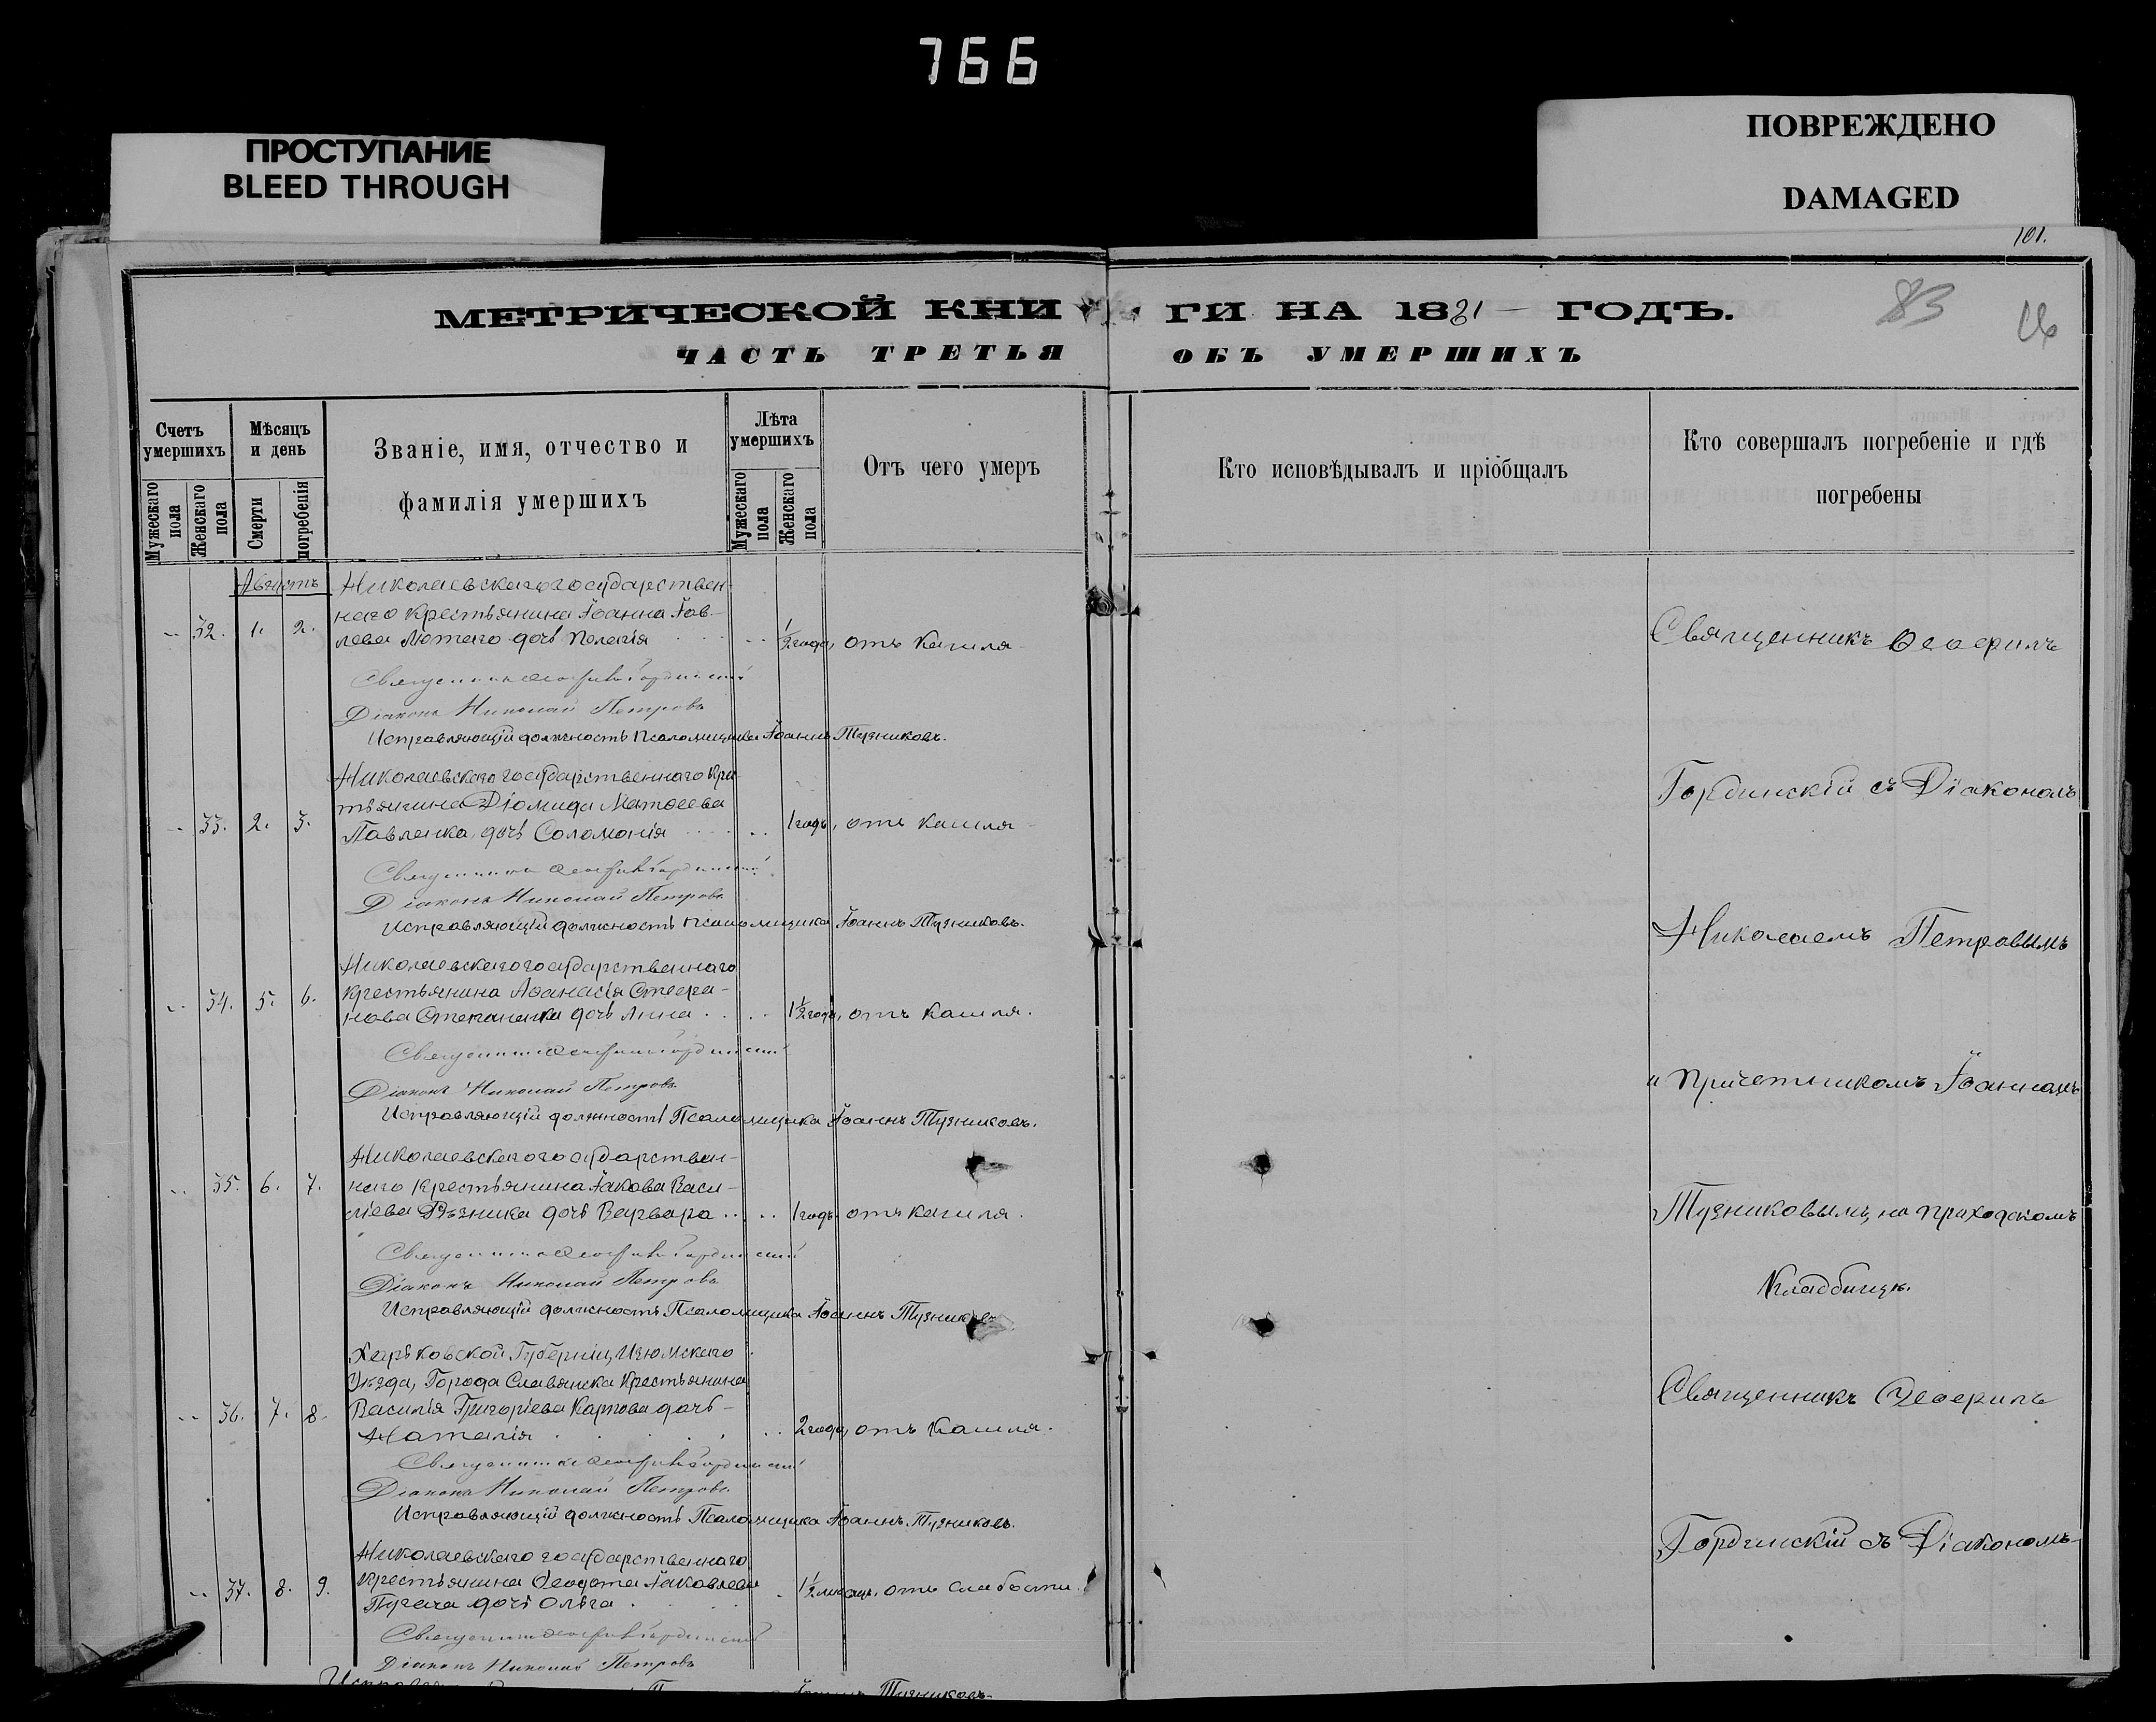 766
ПРОСТУПАНИЕ
BLEED THROUGH
ПОВРЕЖДЕНО
DAMAGED
101.
83
МЕТРИЧЕСКОЙ КНИ ГИ НА 1881 ГОДЪ.
ЧАСТЬ ТРЕТЬЯ ОБЪ УМЕРШИХЪ
Счетъ умершихъ
Мужескаго пола
Женскаго пола
Мѣсяцъ и день
Смерти
погребенія
Званіе, имя, отчество и
фамилія умершихъ
Лѣта умершихъ
Мужескаго пола
Женскаго пола
Отъ чего умеръ
Кто исповѣдывалъ и пріобщалъ
Кто совершалъ погребеніе и гдѣ
погребены
Августъ
Николаевскаго государствен-
наго крестьянина Іоанна Іов-
32. 1. 2. лева Лютаго дочь Пелагія 1/2 года, отъ кашля
Священникъ Ѳеофилъ Гординскій
Діаконъ Николай Петровъ
Исправляющій должность Псаломщика Іоаннъ Тузниковъ.
Николаевскаго государственнаго кре-
тьянина Діомида Матѳеева
33. 2. 3. Павленка, дочь Соломонія 1 годъ, отъ кашля
Священникъ Ѳеофилъ Гординскій
Діаконъ Николай Петровъ
Исправляющій должность Псаломщика Іоаннъ Тузниковъ.
Николаевскаго государственнаго
крестьянина Аѳанасія Стефа-
34. 5. 6. нова Степаненка дочь Анна 1 1/2 года, отъ кашля.
Священникъ Ѳеофилъ Гординскій
Діаконъ Николай Петровъ
Исправляющій должность Псаломщика Іоаннъ Тузниковъ.
Николаевскаго государствен-
наго крестьянина Іакова Васи-
35. 6. 7. льева Рѣзника дочь Варвара 1 годъ отъ кашля.
Священникъ Ѳеофилъ Гординскій
Діаконъ Николай Петровъ
Исправляющій должность Псаломщика Іоаннъ Тузниковъ
Харьковской Губерніи, Изюмскаго
Уѣзда, Города Славянска крестьянина
36. 7. 8. Василія Григоріева Карпова дочь
Наталія 2 года, отъ кашля.
Священникъ Ѳеофилъ Гординскій
Діаконъ Николай Петровъ
Исправляющій должность Псаломщика Іоаннъ Тузниковъ.
Николаевскаго государственнаго
крестьянина Ѳеодота Іаковлева
37. 8. 9. Пугача дочь Ольга 1/2 мѣсяц. отъ слабости.
Священникъ Ѳеофилъ Гординскій
Діаконъ Николай Петровъ
Іоаннъ Тузниковъ.
Священникъ Ѳеофилъ
Гординскій съ Діаконамъ
Николаемъ Петровымъ
и причетникомъ Іоанномъ
Тузниковымъ, на приходскомъ
Кладбищѣ.
Священникъ Ѳеофилъ
Гординскій съ Діакономъ